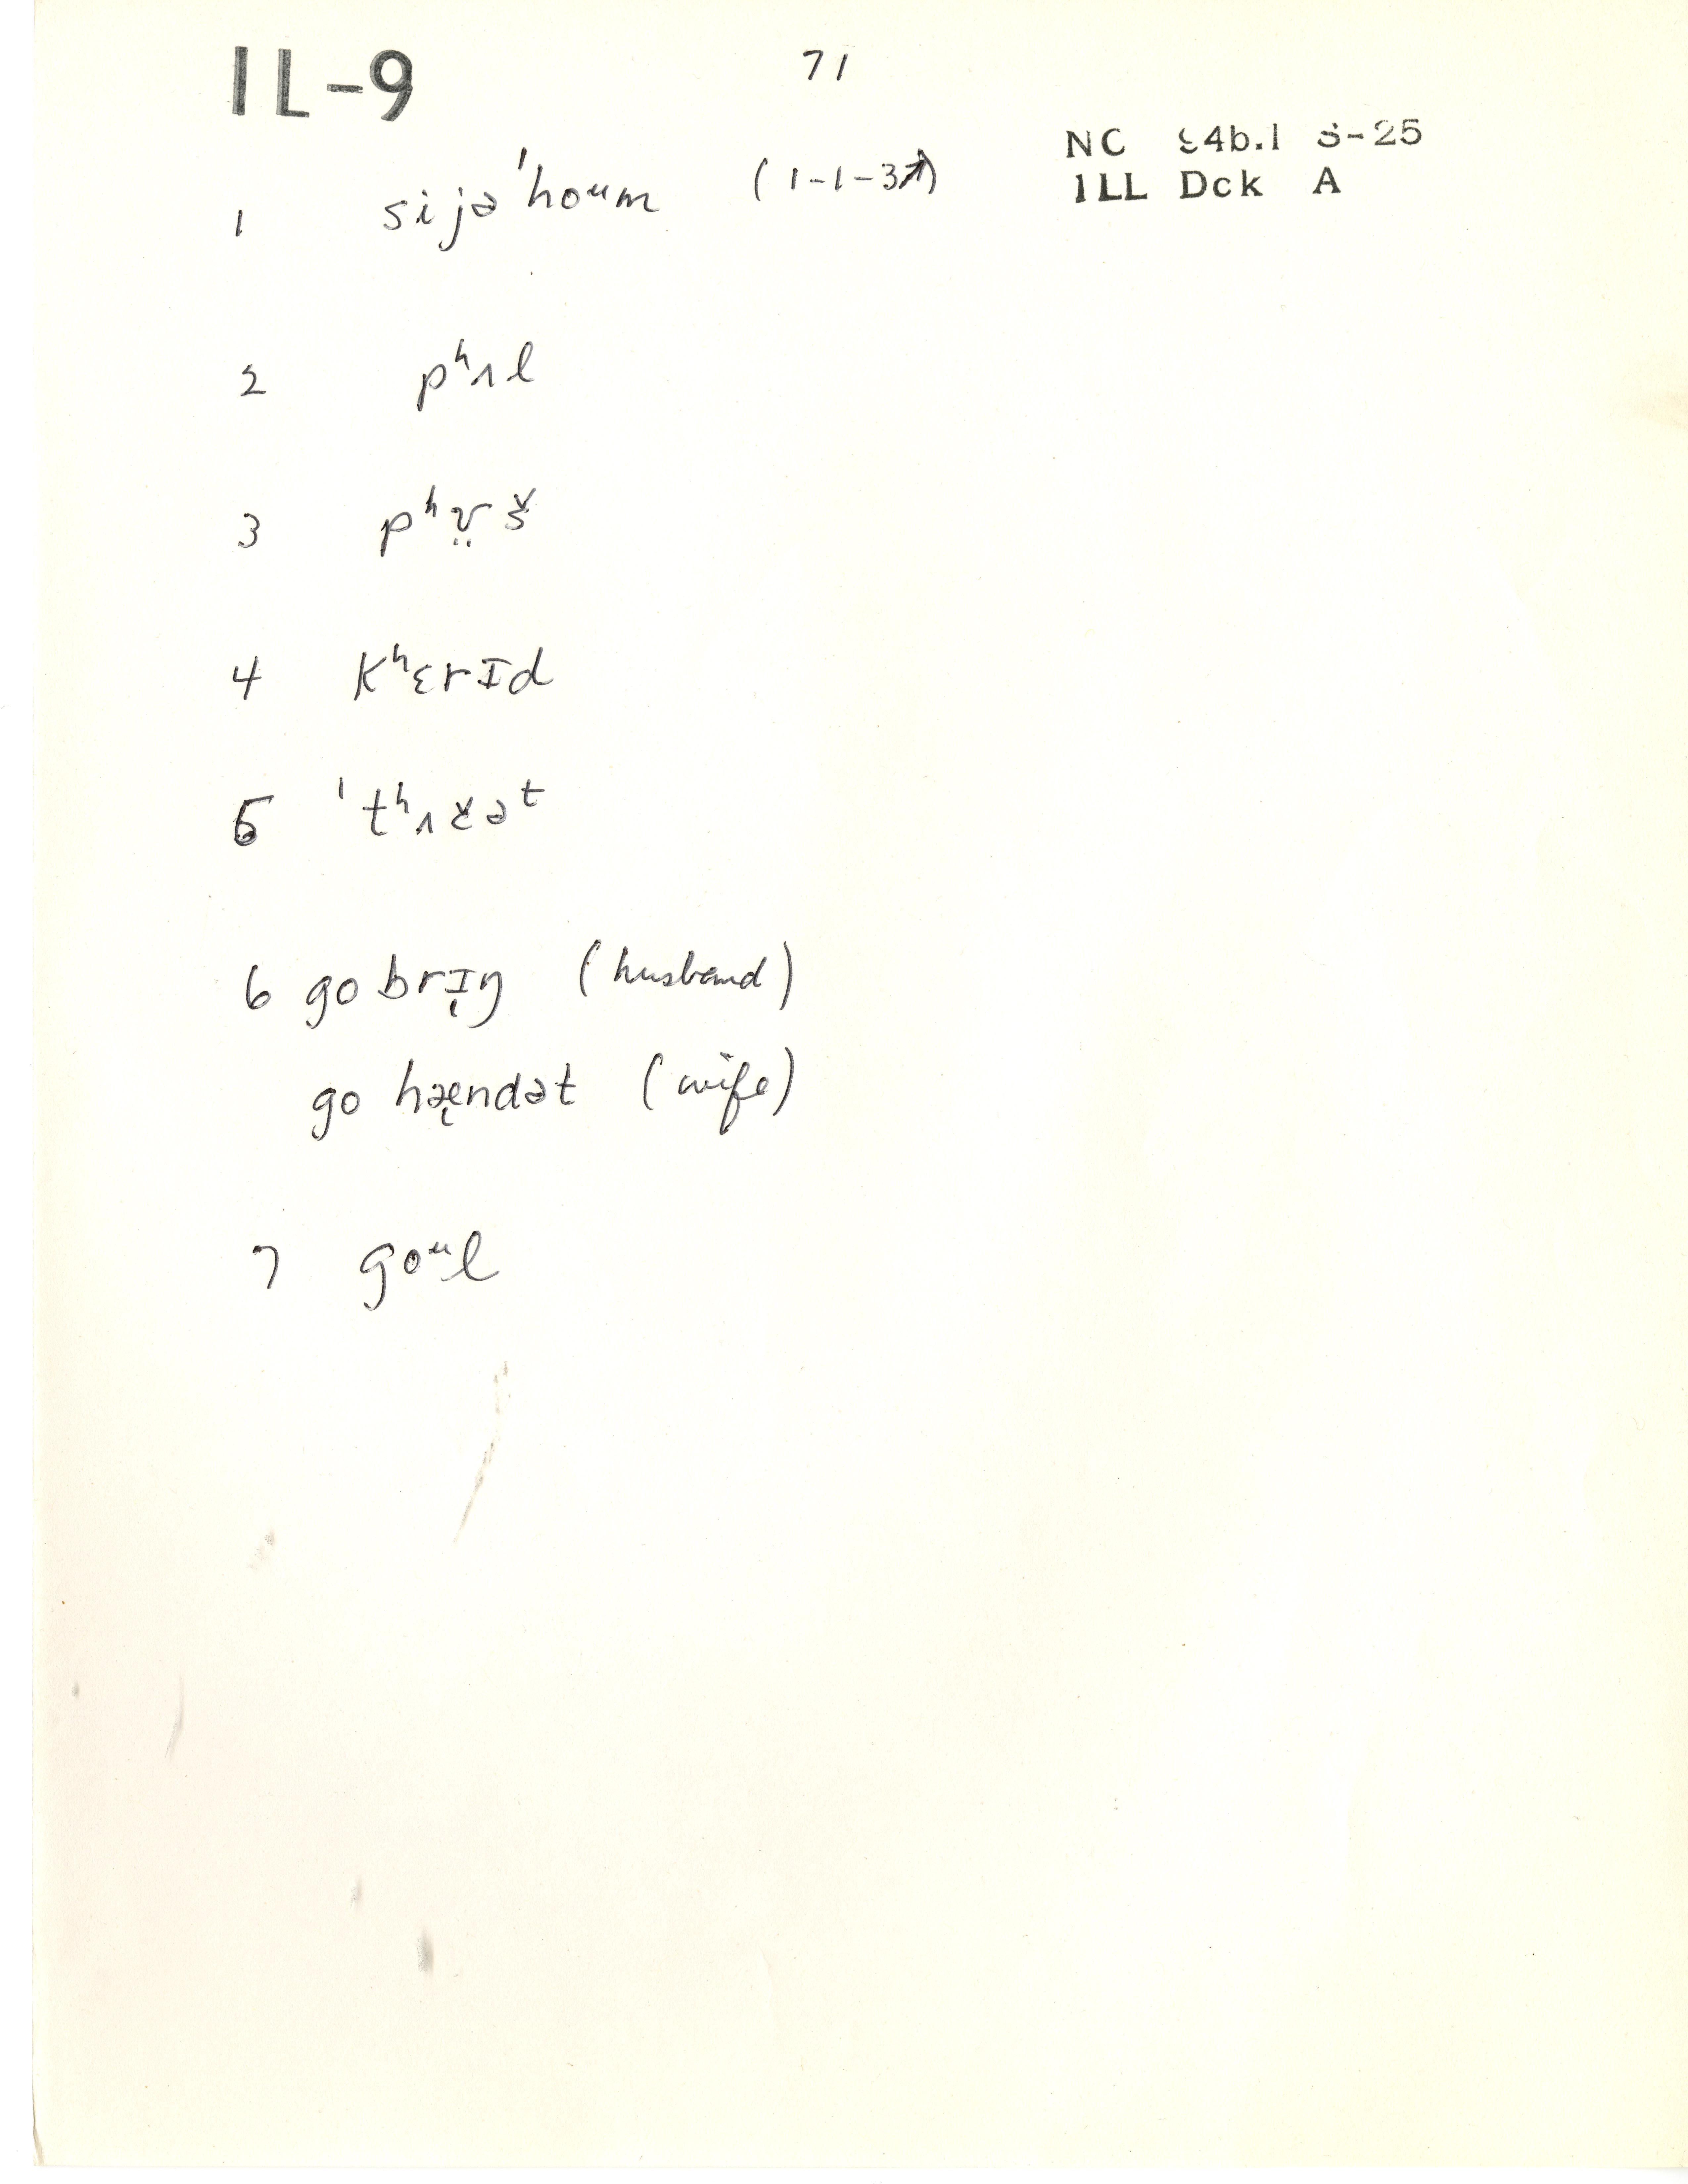 IL-9
71
NC 54b.1 S-25
ILL Dck A
1 sijə'hoᵘm (1-1-3↗)
2 pʰʌl
3 pʰʊ̤š
4 Kʰɛrɪd
5 'tʰʌčəᵗ
6 go brɪŋ (husband)
go hændət (wife)
7 goᵘl